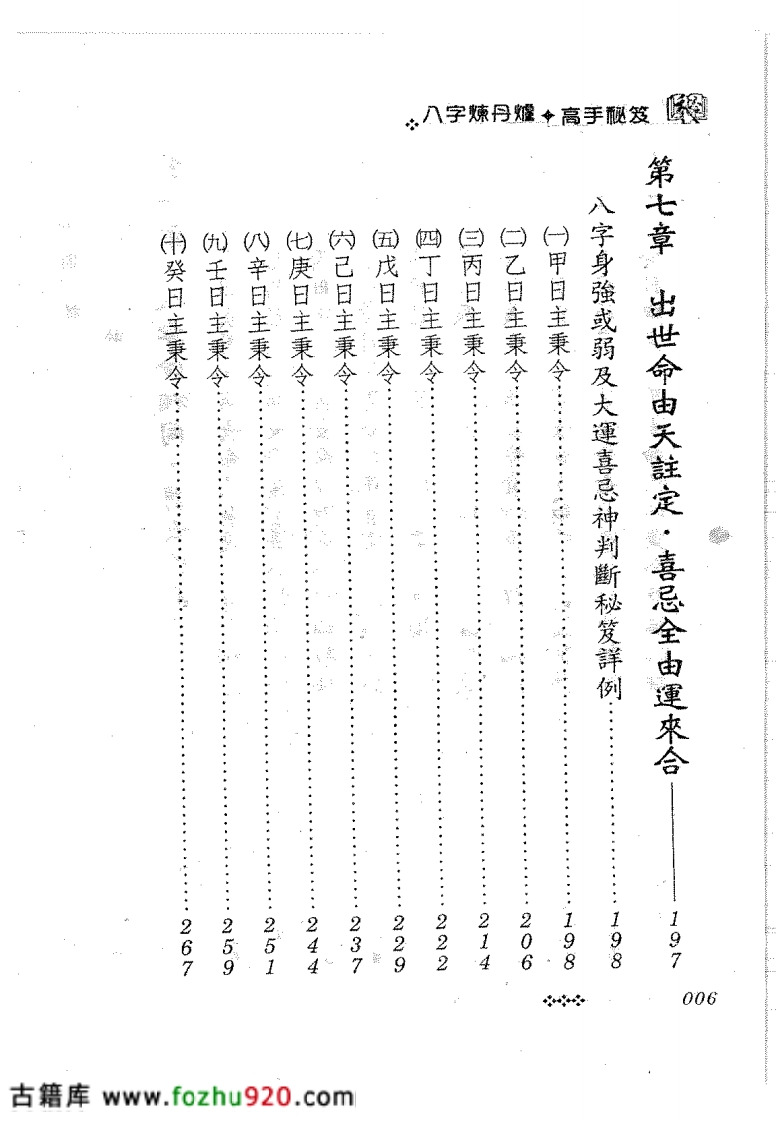 八字煉丹爐✦高手秘笈 秘
第七章 出世命由天註定·喜忌全由運來合——197
八字身強或弱及大運喜忌神判斷秘笈詳例……198
㈠甲日主秉令……198
㈡乙日主秉令……206
㈢丙日主秉令……214
㈣丁日主秉令……222
㈤戊日主秉令……229
㈥己日主秉令……237
㈦庚日主秉令……244
㈧辛日主秉令……251
㈨壬日主秉令……259
㈩癸日主秉令……267
006
古籍库 www.fozhu920.com